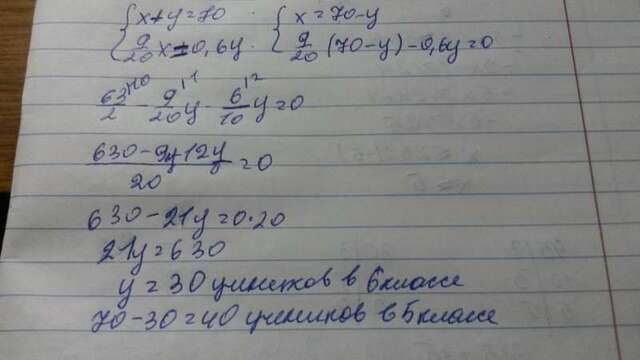 {x+y=70 {x=70-y
{9/20 x=0,6y. {9/20 (70-y)-0,6y=0
63/2 |10 - 9/20 y |1 - 6/10 y |2 =0
630-9y-12y/20 =0
630-21y=0·20
21y=630
y=30 учеников в 6 классе
70-30=40 учеников в 5 классе